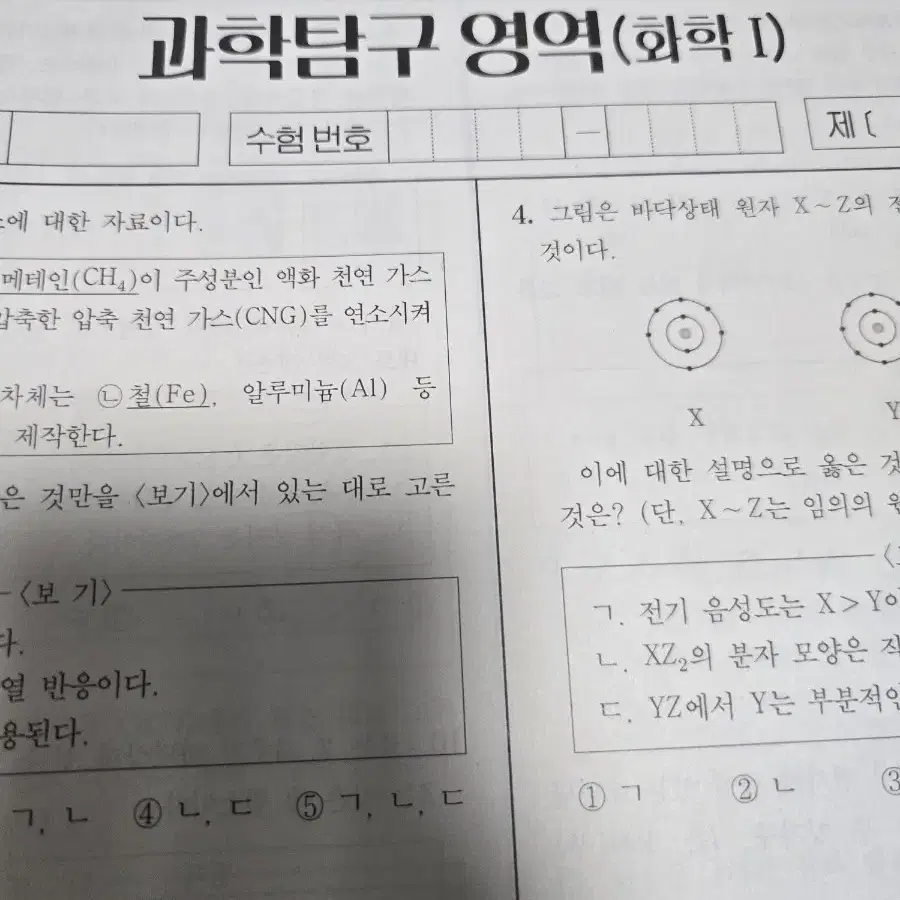 과학탐구 영역(화학 I)
수험 번호
—
제 (
에 대한 자료이다.
메테인(CH₄)이 주성분인 액화 천연 가스
압축한 압축 천연 가스(CNG)를 연소시켜
차체는 ㉡철(Fe), 알루미늄(Al) 등
제작한다.
은 것만을 <보기>에서 있는 대로 고른
<보 기>
다.
열 반응이다.
용된다.
ㄱ, ㄴ ④ ㄴ, ㄷ ⑤ ㄱ, ㄴ, ㄷ
4. 그림은 바닥상태 원자 X~Z의
것이다.
X Y
이에 대한 설명으로 옳은 것
것은? (단, X~Z는 임의의
ㄱ. 전기 음성도는 X>Y이
ㄴ. XZ₂의 분자 모양은 직
ㄷ. YZ에서 Y는 부분적인
① ㄱ ② ㄴ ③